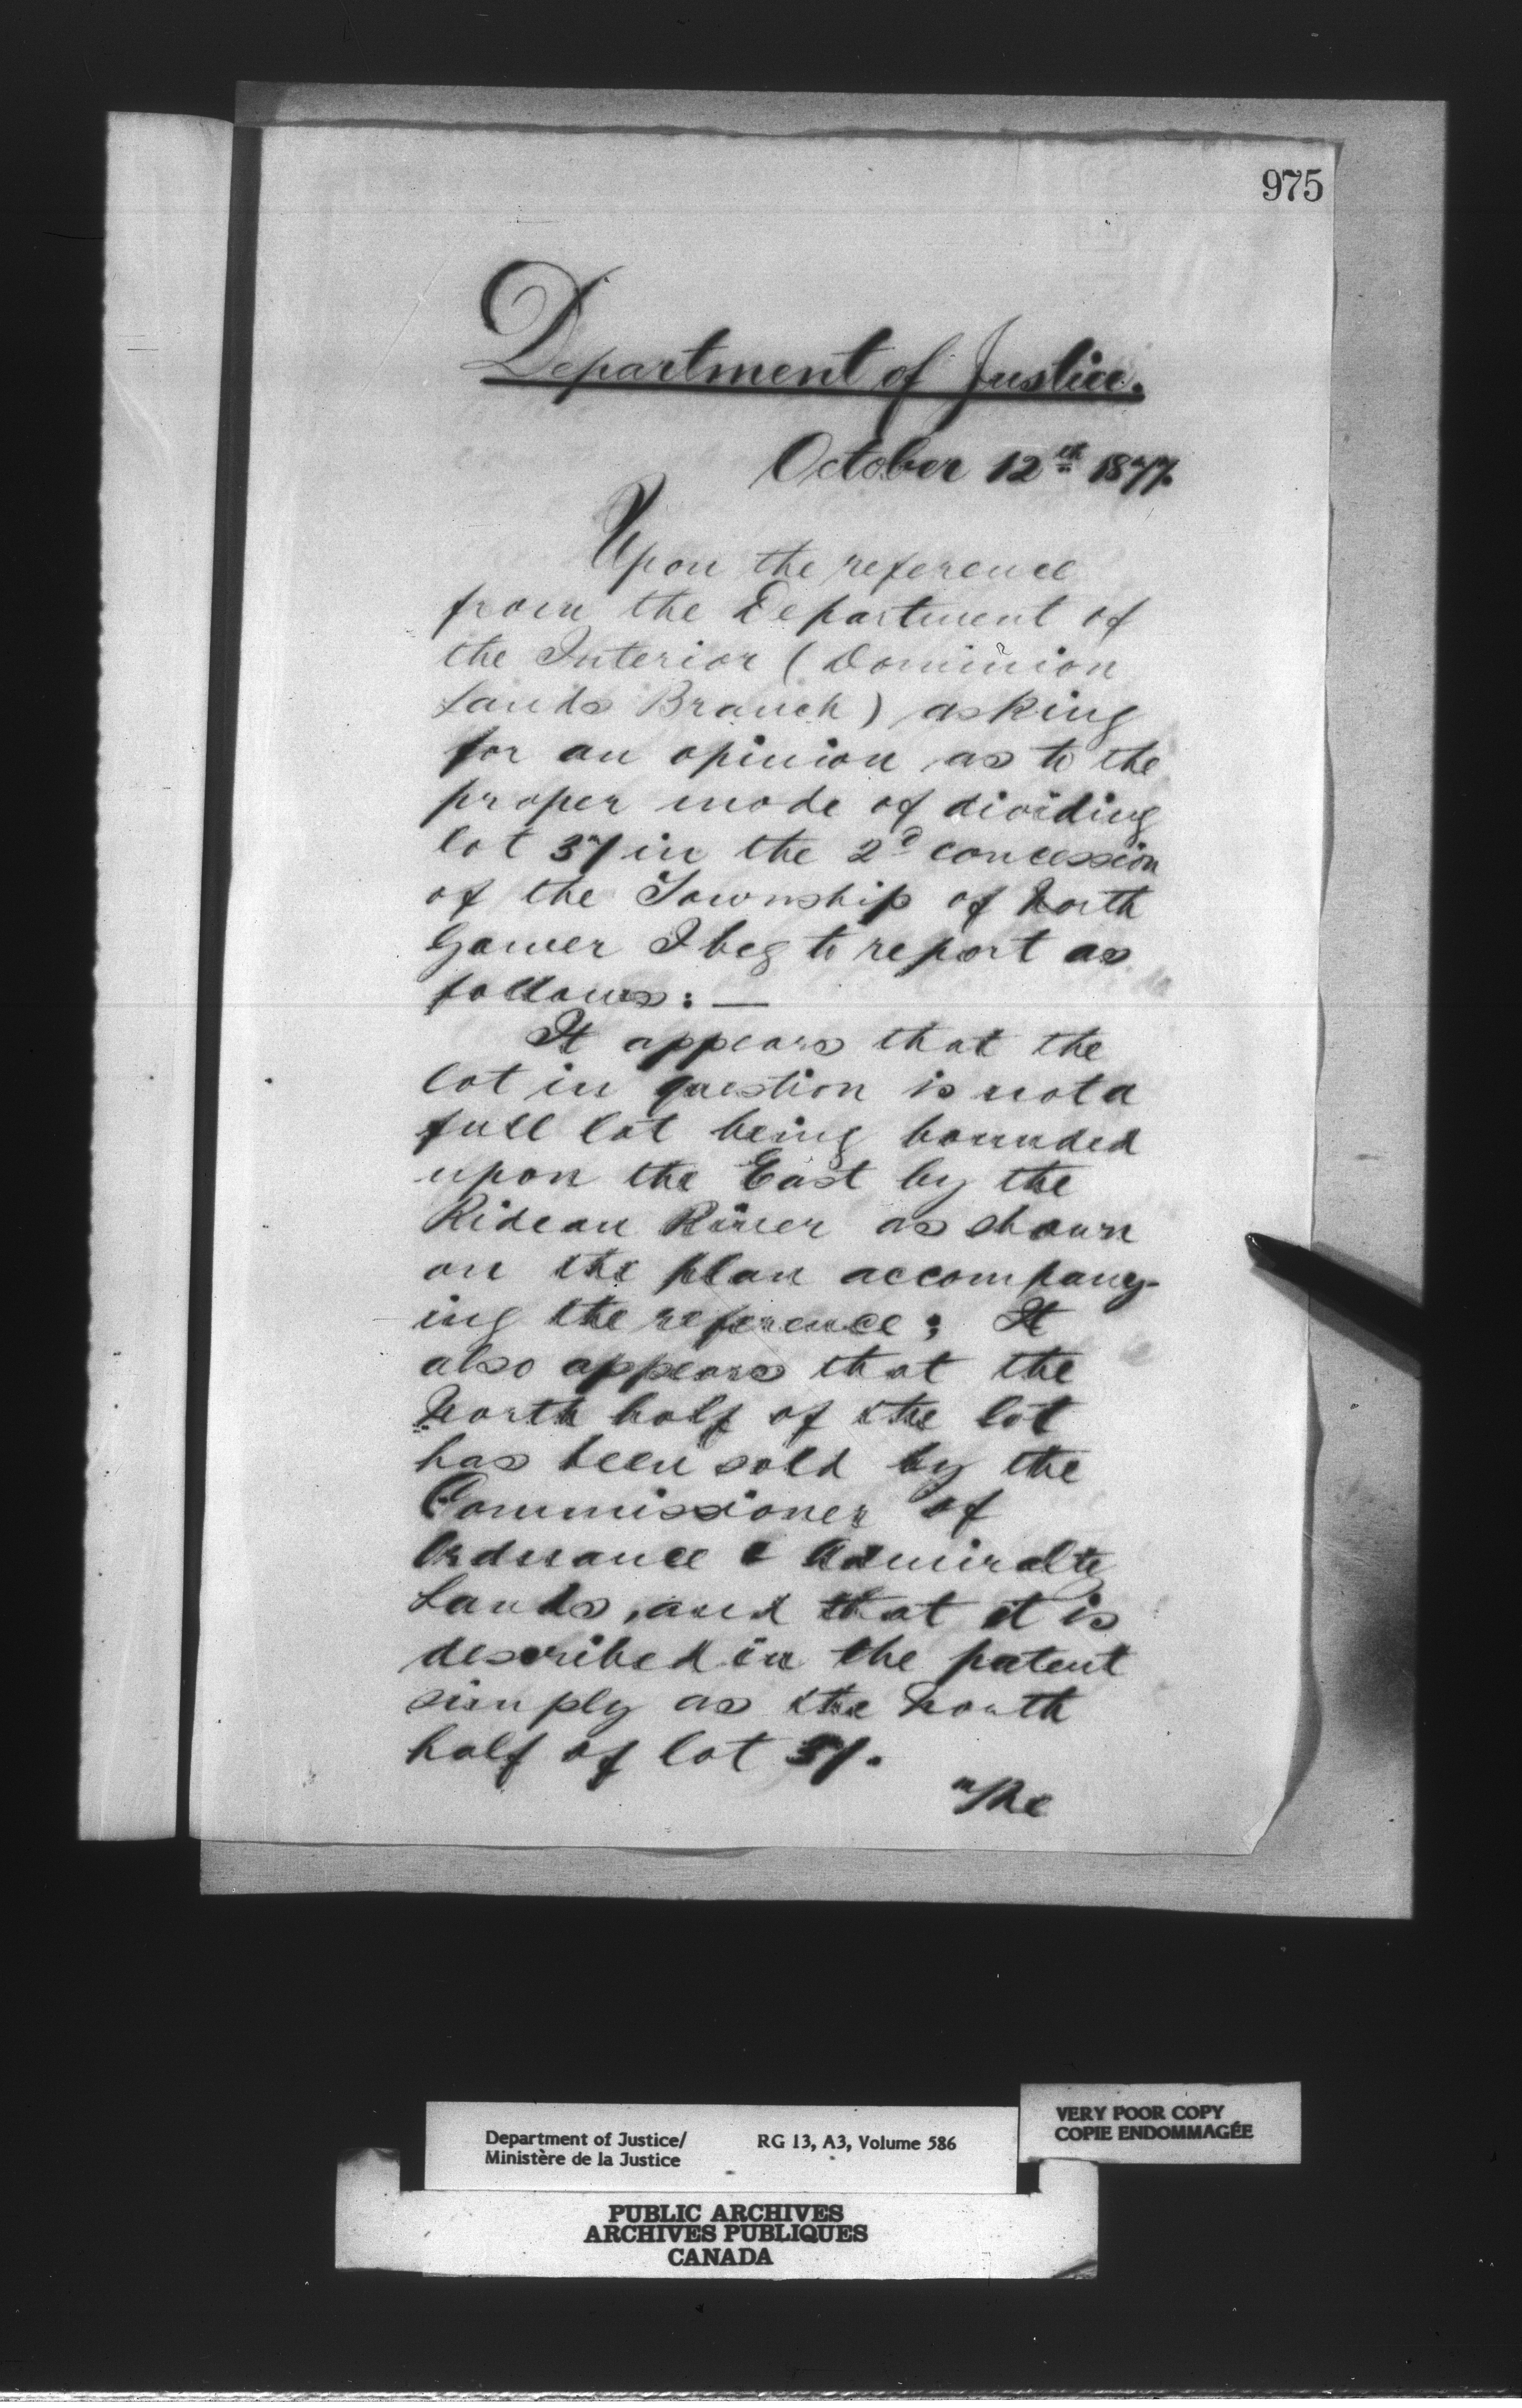 975
Department of Justice.
October 12th 1877.
Upon the reference
from the Department of
the Interior (Dominion
Lands Branch) asking
for an opinion as to the
proper mode of dividing
lot 37 in the 2d concession
of the Township of North
Gower I beg to report as
follows: —
It appears that the
lot in question is not a
full lot being bounded
upon the East by the
Rideau River as shown
on the plan accompany-
ing the reference; It
also appears that the
North half of the lot
has been sold by the
Commissioner of
Ordnance & Admiralty
Lands, and that it is
described in the patent
simply as the North
half of lot 37.
The
VERY POOR COPY
COPIE ENDOMMAGÉE
Department of Justice/ RG 13, A3, Volume 586
Ministère de la Justice
PUBLIC ARCHIVES
ARCHIVES PUBLIQUES
CANADA